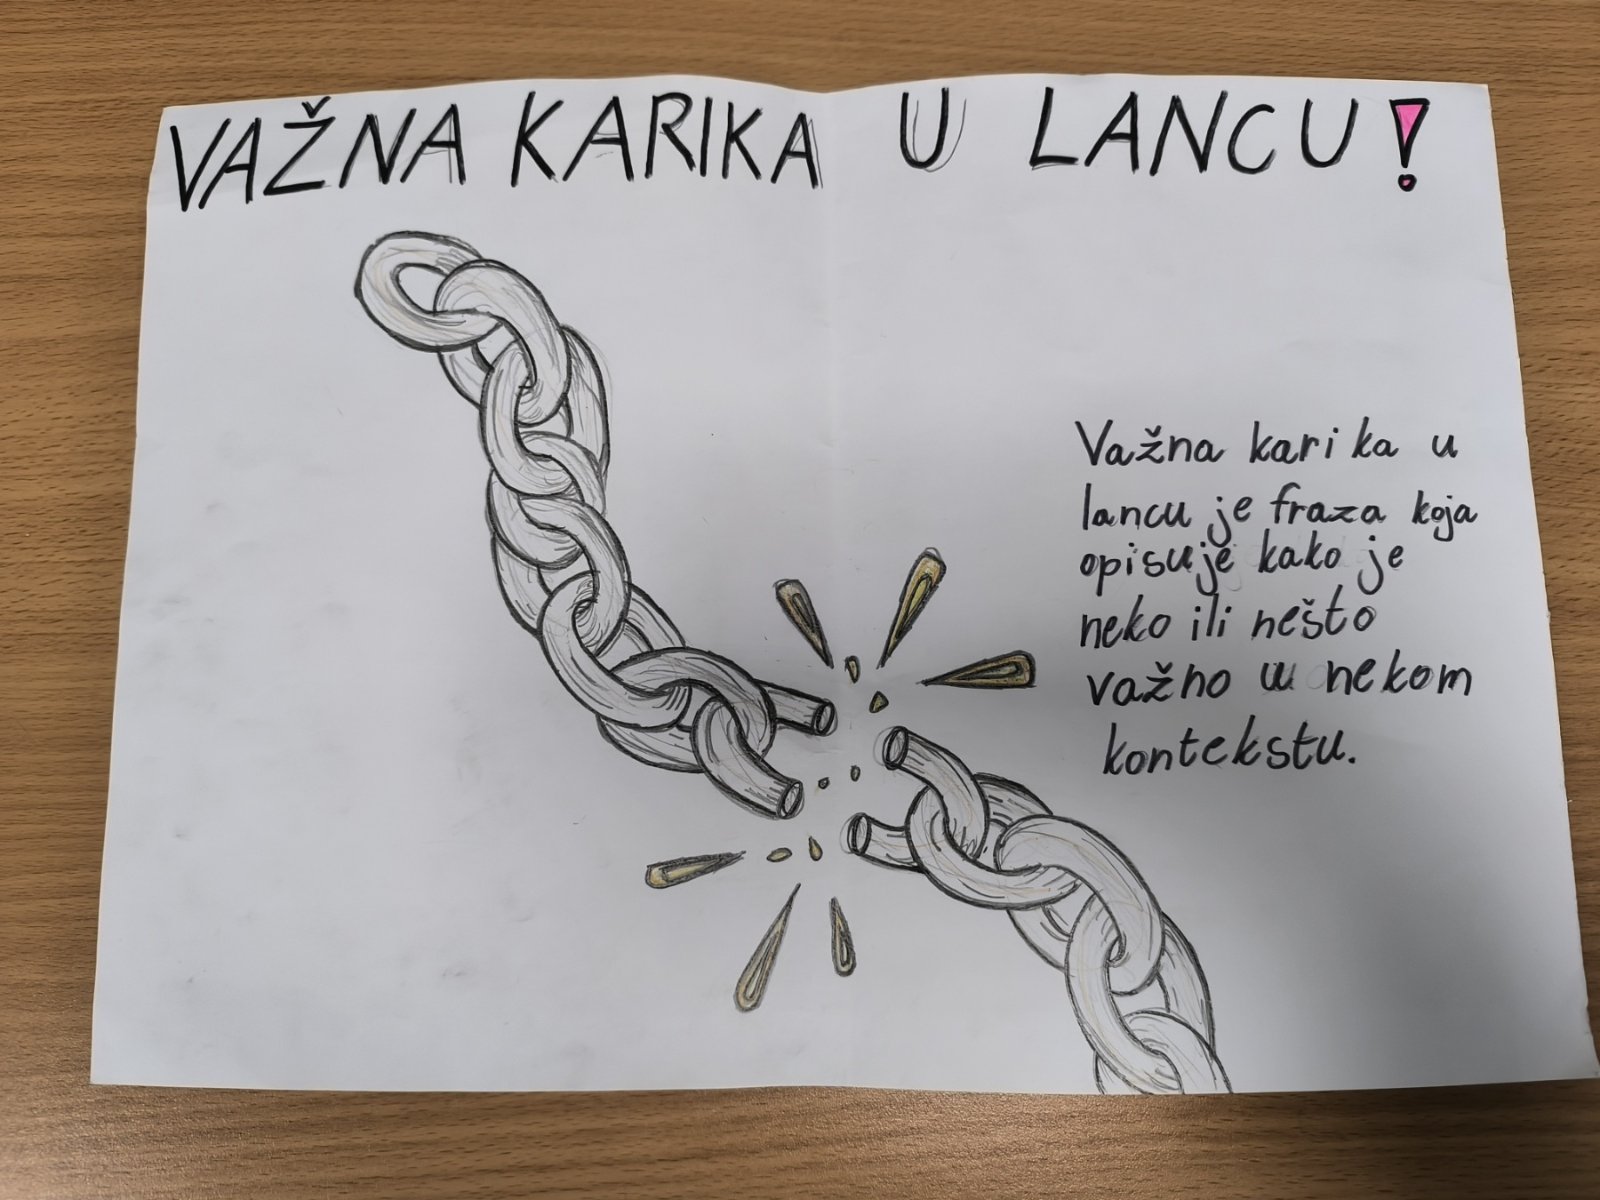 VAŽNA KARIKA U LANCU!
Važna karika u
lancu je fraza koja
opisuje kako je
neko ili nešto
važno u nekom
kontekstu.